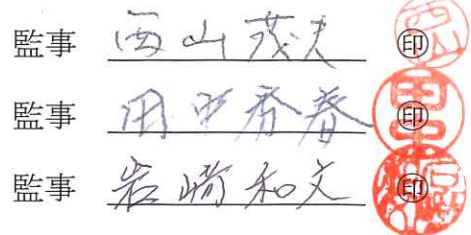 監事 西山茂夫 ㊞
監事 田中秀春 ㊞
監事 岩崎和文 ㊞